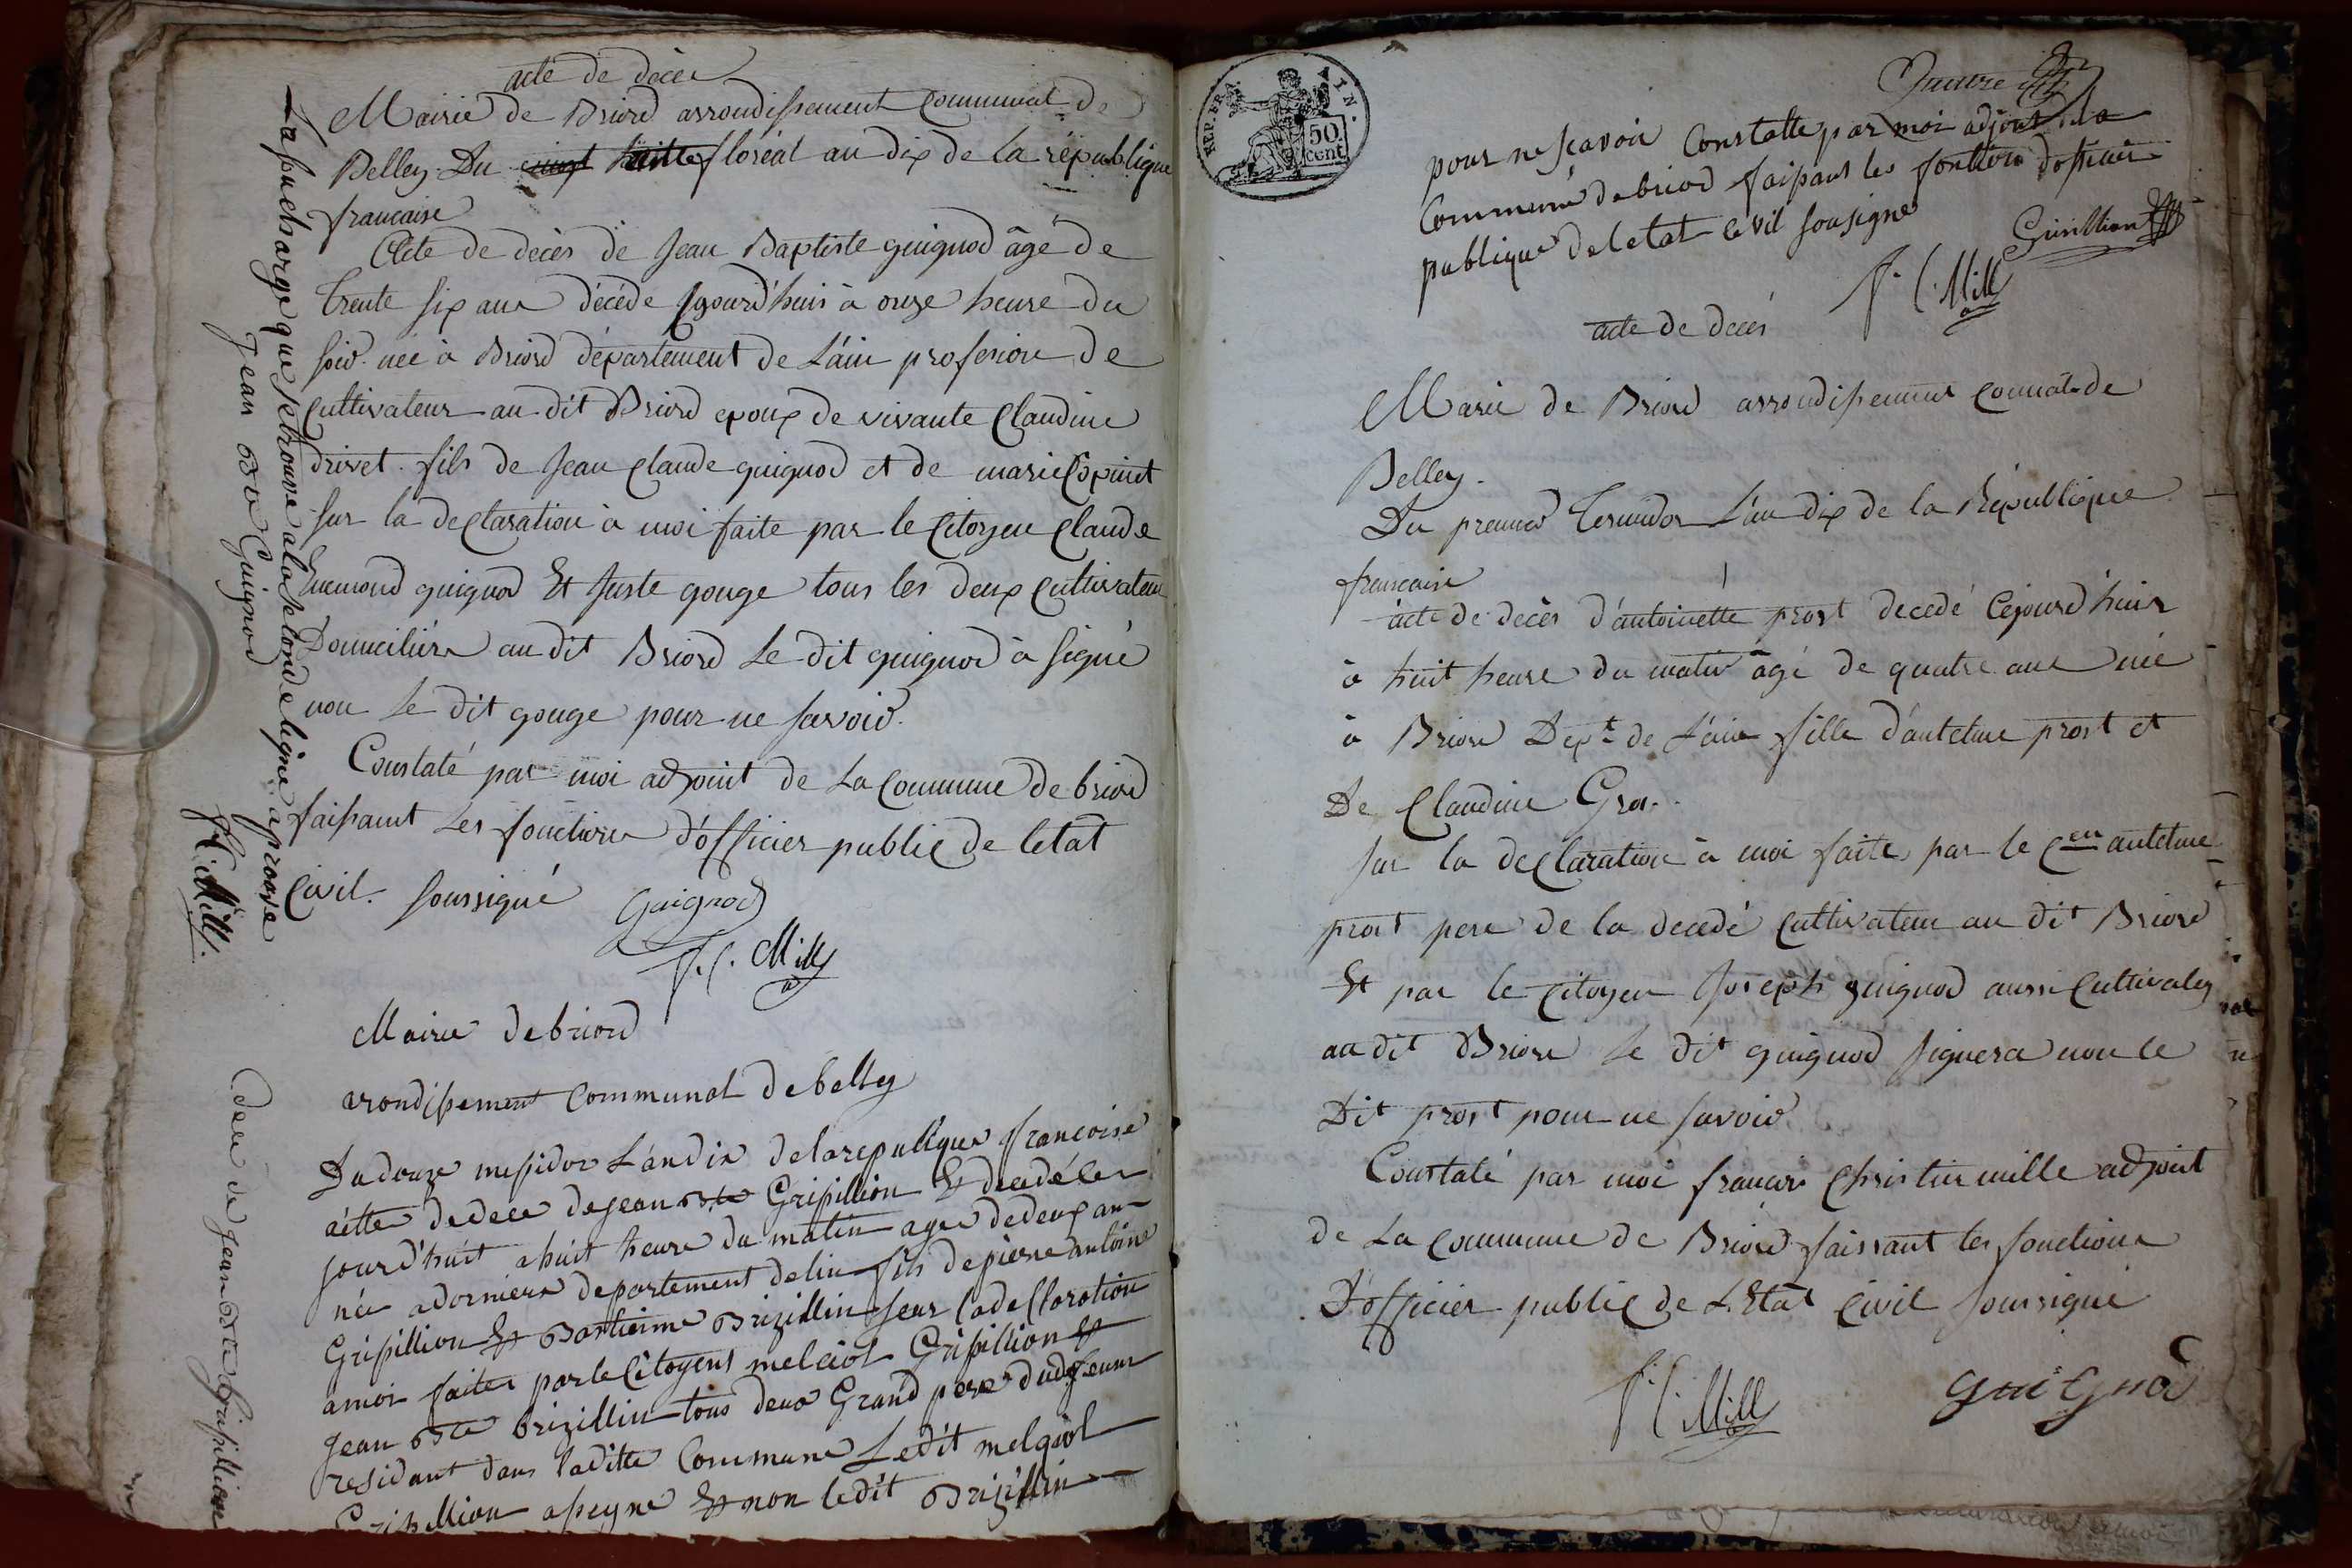 acte de décès
Mairie de Briord arrondissement Communal de
Belley. Du vingt huitte floréal an dix de la république
francaise
Acte de decès de Jean Baptiste guignod âgé de
trente six ans décédé cejourd'hui à onze heure du
soir. née à Briord département de L'ain profesion de
cultivateur au dit Briord epoux de vivante Claudine
drivet. fils de Jean Claude guignod et de marie
sur la declaration à moi faite par le Citoyen Claude
guignod Et Juste gouge tous les deux Cultivateur
Domiciliéra au dit Briord Le dit guignod à signé
non Le dit gouge pour ne savoir.
Constaté par moi adjoint de La Commune de briord
faisant Les fonctions d'officier public de letat
Civil. soussigné
Guignod
f. C. Mille
La suchargé que se trouve a la seconde ligne aprouve
Jean Bte Guignod
f. C. Mille
Mairie de briord
arondisement Communal de belley
Du douze mesidor L'an dix de la republique francoise
aette de dece de jean Bte Gripillion Et decedé ce
jourd'huit a huit heure du matin agee de deux an
née a dorniera departement de lin fils de pierre antoine
Gripillion Et Bartieime Brizillin seur la declloration
a moi faites par le Citoyens melciol Gripillion Et
Jean Bte brizillin tous deux Grand pere dud
residant dans laditte Commune Le dit melqiol
Gripillion a seyne Et non le dit Brizillin
dece de jean Bte Gripillion
REP. FRA.
50
cent
AIN.
pour ne scavoir Constatte par moi adjoint de la
Commune de briord faisant les fonttion dofficier
publique de letat Cevil sousigne
f. C. Mille
acte de decès
Marie de Briord arrondissement de
Belley.
Du premier Termidor L'an dix de la République
francaise
acte de decès d'antoinette prost decedé Cejourd'huir
à huit heure du matin âgé de quatre ans née
à Briord Dept de L'ain fille d'antelme prost et
De Claudine Gros.
sur la declaration à moi faite par le Cen antelme
prost pere de la decedé Cultivateur au dit Briord
Et par le Citoyen Joseph guignod aussi Cultivateur
au dit Briord le dit guignod signera non le
Dit prost pour ne savoir
Constaté par moi francois Christin mille adjoint
de La commune de Briord faissant les fonctions
D'officier public de L'Etat Civil soussigné
f. C. Mille
guignod